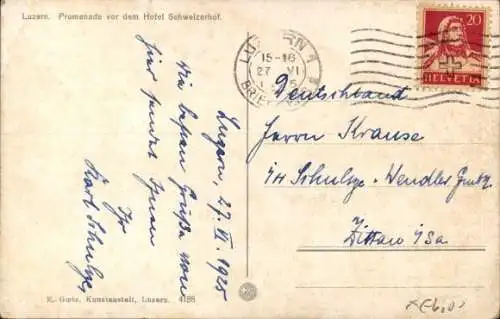 Luzern. Promenade vor dem Hotel Schweizerhof.
Luzern, 27. VI. 1925
Die besten Grüße von
hier sendet Ihnen
Ihr
Karl Schulze
LUZERN 1
15-16
27 VI
BRIEF
20
HELVETIA
Deutschland
Herrn Krause
i/H Schulze-Wendler
Zittau i/Sa.
E. Goetz, Kunstanstalt, Luzern. 4188